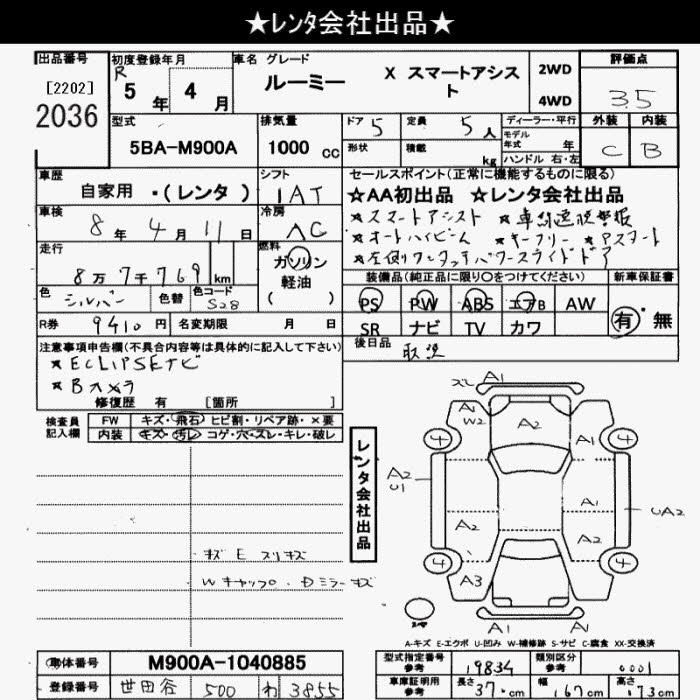 ★レンタ会社出品★
出品番号
[2202]
2036
初度登録年月
R 5年 4月
車名 グレード
ルーミー X スマートアシスト
2WD
4WD
評価点
3.5
型式
5BA-M900A
排気量
1000 cc
ドア 5
定員 5人
ディーラー・平行
モデル年式 年
形状
積載 kg
ハンドル 右・左
外装 内装
C B
車歴
自家用 ・(レンタ)
シフト
IAT
セールスポイント(正常に機能するものに限る)
☆AA初出品 ☆レンタ会社出品
★スマートアシスト ★車線逸脱警報
★オートハイビーム ★キーフリー ★アスマート
★左側ワンタッチパワースライドドア
車検
8年 4月 11日
冷房
AC
走行
8万7千769 km
燃料
ガソリン
軽油
( )
装備品(純正品に限り○をつけてください)
新車保証書
PS PW ABS エアB AW
SR ナビ TV カワ
有・無
色
シルバー
色替
色コード
S28
R券 9410円
名変期限 月 日
後日品
取説
注意事項申告欄(不具合内容等は具体的に記入して下さい)
★ECLIPSEナビ
★Bカメラ
修復歴 有 [箇所
検査員記入欄
FW キズ・飛石・ヒビ割・リペア跡・×要
内装 キズ・汚レ・コゲ・穴・スレ・キレ・破レ
キズ E スリキズ
Wキャップ・Dミラーキズ
レンタ会社出品
スレ A1
A1
W2
A2
A1
4
4
A2
U1
A1
UA2
A2
A2
4
4
A3
A1
A1
A-キズ E-エクボ U-凹み W-補修跡 S-サビ C-腐食 XX-交換済
車体番号
M900A-1040885
登録番号
世田谷 500 わ 3855
型式指定番号
参考
19834
類別区分
参考
0001
車庫証明用
参考
長さ 370cm
幅 167cm
高さ 173cm